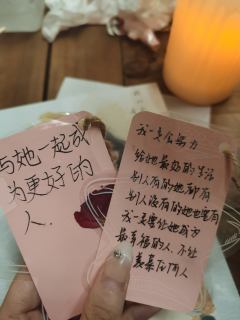 与她一起成
为更好的
人.
我一定会努力
给她最好的生活
别人有的她都有
别人没有的她也要有
我一定要让她成为
最幸福的人,不让
她羡慕任何人